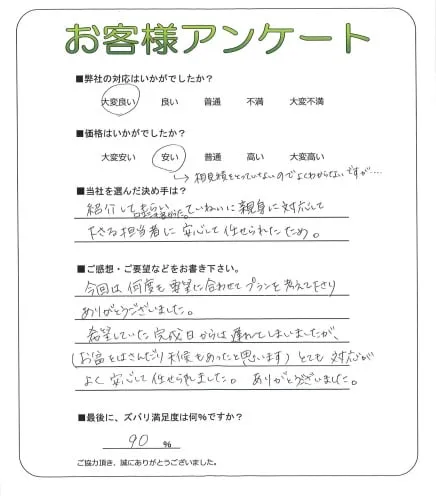 お客様アンケート
■弊社の対応はいかがでしたか？
大変良い 良い 普通 不満 大変不満
■価格はいかがでしたか？
大変安い 安い 普通 高い 大変高い
→相見積をとっていないのでよくわからないですが…
■当社を選んだ決め手は？
紹介してもらい ていねいに親身に対応して
下さる担当者に安心して任せられたため。
■ご感想・ご要望などをお書き下さい。
今回は何度も要望に合わせてプランを考えて下さり
ありがとうございました。
希望していた完成日からは遅れてしまいましたが、
(お盆をはさんだり天候もあったと思います)とても対応が
よく安心して任せられました。ありがとうございました。
■最後に、ズバリ満足度は何％ですか？
90 ％
ご協力頂き、誠にありがとうございました。